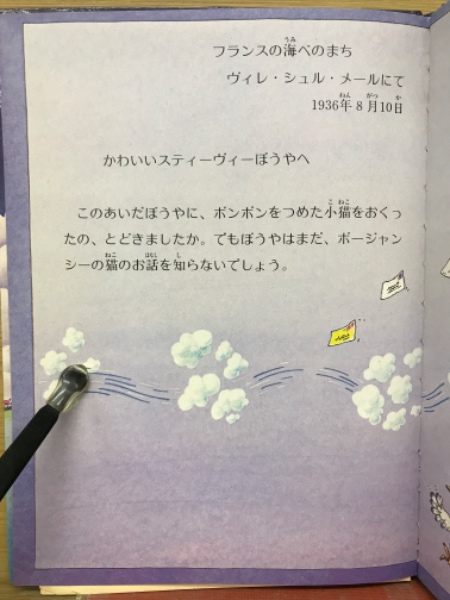 フランスの海べのまち
ヴィレ・シュル・メールにて
1936年8月10日
かわいいスティーヴィーぼうやへ
このあいだぼうやに、ボンボンをつめた小猫をおくっ
たの、とどきましたか。でもぼうやはまだ、ボージャン
シーの猫のお話を知らないでしょう。